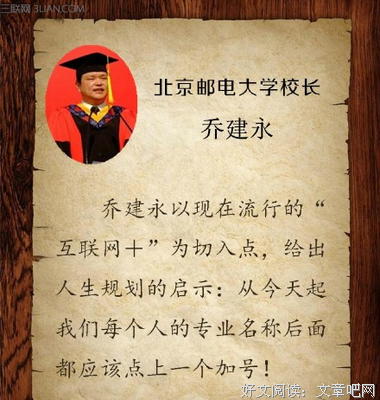 三联网 3LIAN.COM
北京邮电大学校长
乔建永
乔建永以现在流行的“
互联网＋”为切入点，给出
人生规划的启示：从今天起
我们每个人的专业名称后面
都应该点上一个加号！
好文阅读：文章吧网